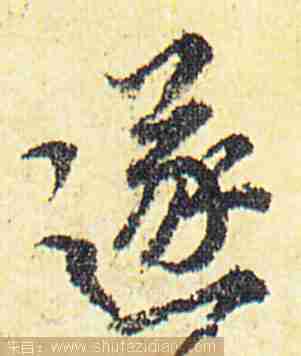 遂
来自：www.shufazidian.com